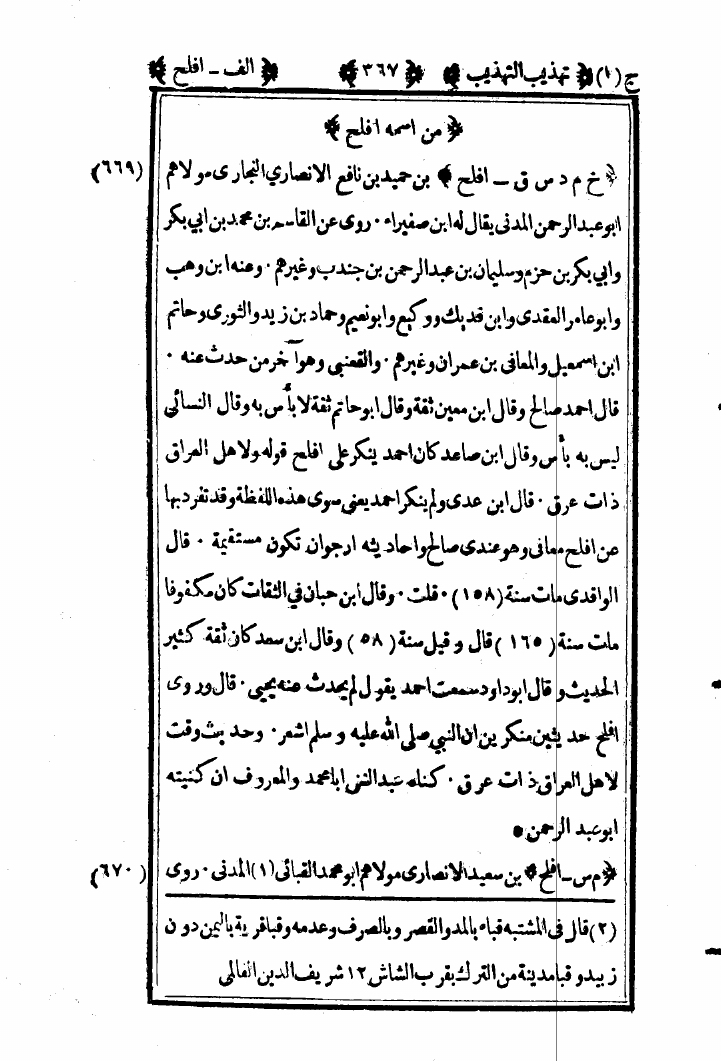 ج (١) ﴿ تهذيب التهذيب ﴾ ﴿ ٣٦٧ ﴾ ﴿ الف ـ افلح ﴾
﴿ من اسمه افلح ﴾
﴿ خ م د س ق ـ افلح ﴾ بن حميد بن نافع الانصاري النجارى مولاهم (٦٦٩)
ابو عبد الرحمن المدنى يقال له ابن صفيراء ۰ روى عن القاسم بن محمد بن ابي بكر
وابي بكر بن حزم وسليمان بن عبد الرحمن بن جندب وغيرهم ۰ وعنه ابن وهب
وابو عامر العقدى وابن فديك ووكيع وابو نعيم وحماد بن زيد والثورى وحاتم
ابن اسمعيل والمعافى بن عمران وغيرهم ۰ والقعنبى وهو آخر من حدث عنه ۰
قال احمد صالح وقال ابن معين ثقة وقال ابو حاتم ثقة لا بأس به وقال النسائي
ليس به بأس وقال ابن صاعد كان احمد ينكر على افلح قوله ولاهل العراق
ذات عرق ۰ قال ابن عدى ولم ينكر احمد يعنى سوى هذه اللفظة وقد تفرد بها
عن افلح معافى وهو عندى صالح واحاديثه ارجو ان تكون مستقيمة ۰ قال
الواقدى مات سنة (١٥٨) ۰ قلت ۰ وقال ابن حبان في الثقات كان مكفوفا
مات سنة (١٦٥) قال و قيل سنة (٥٨) وقال ابن سعد كان ثقة كثير
الحديث و قال ابو داود سمعت احمد يقول لم يحدث عنه يحيى ۰ قال وروى
افلح حديثين منكرين ان النبي صلى الله عليه و سلم اشعر ۰ وحديث وقت
لاهل العراق ذات عرق ۰ كناه عبد الغنى ابا محمد والمعروف ان كنيته
ابو عبد الرحمن ●
﴿ م س ـ افلح ﴾ بن سعيد الانصارى مولاهم ابو محمد القبائى (١) المدنى ۰ روى (٦٧٠)
(٢) قال فى المشتبه قباء بالمد والقصر وبالصرف وعدمه وقبا قرية باليمن دون
زبيد و قبا مدينة من الترك بقرب الشاش ١٢ شريف الدين الفالمى